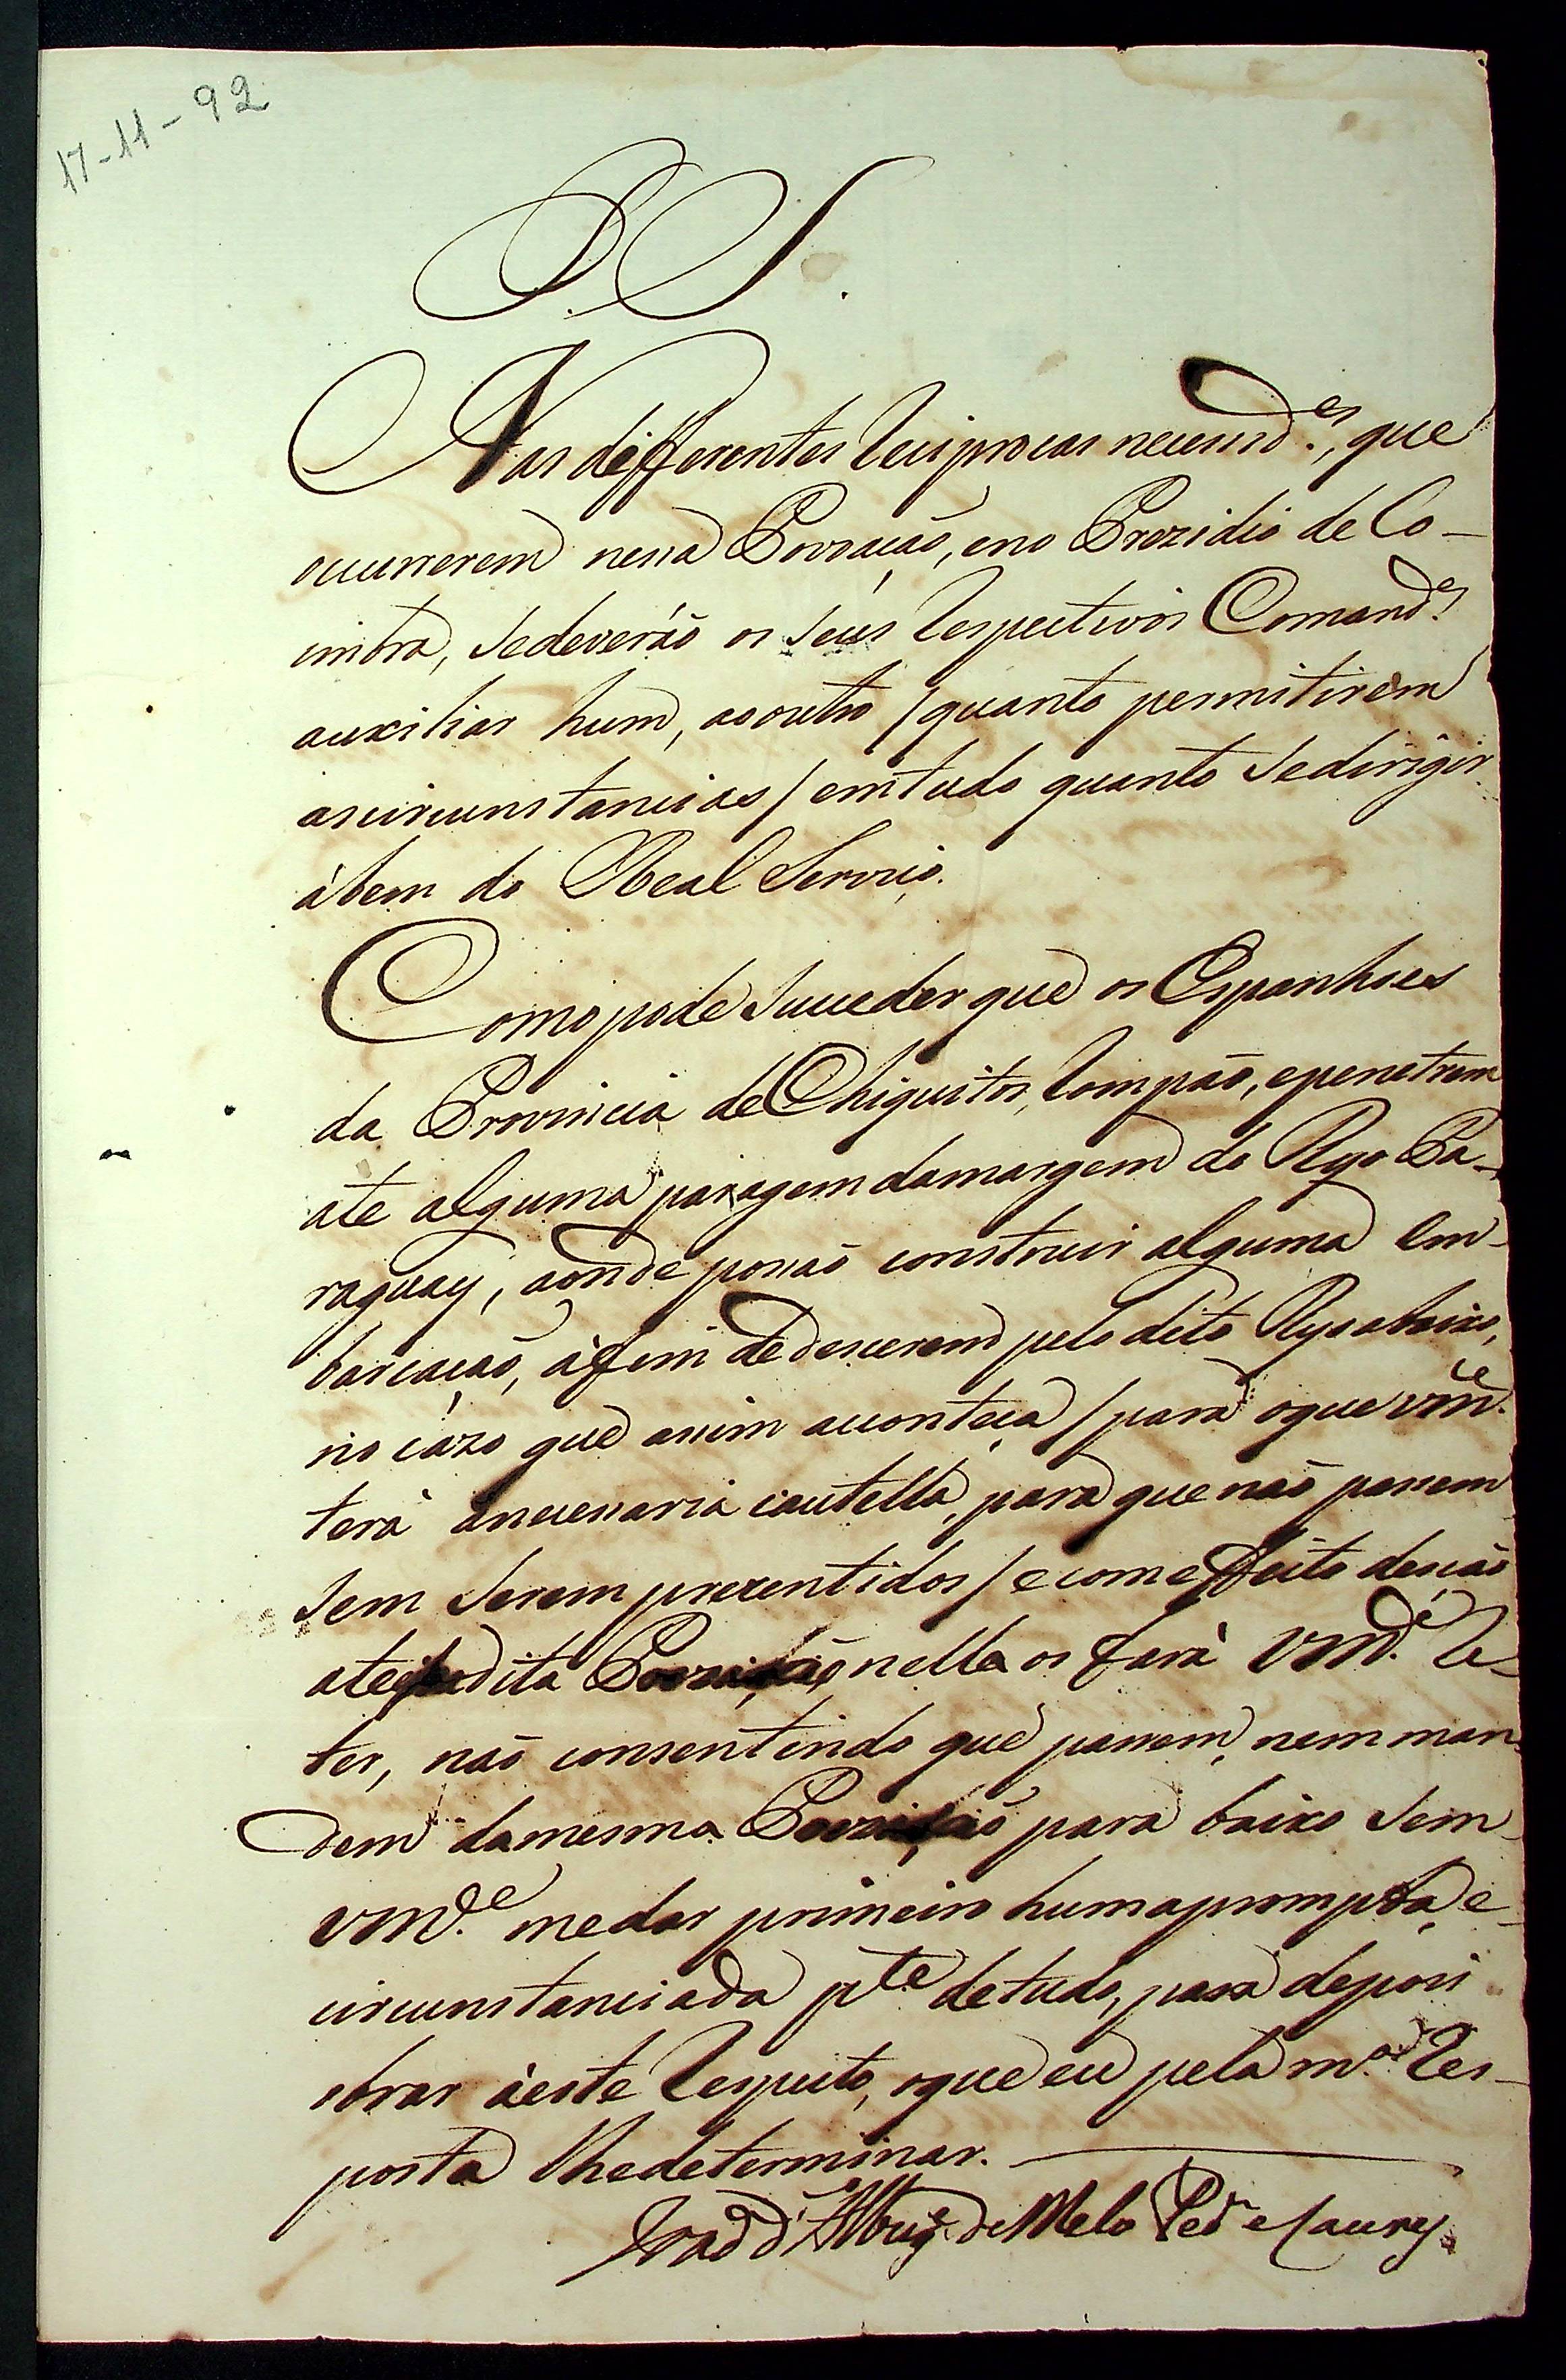 17-11-92
P. S.
Nas differentes reciprocas necessid.es, que
occurrerem nessa Povoação, e no Prezidio de Co-
imbra, se deverão os seus respectivos Comand.es
auxiliar hum, ao outro / quanto permitirem
as circunstancias / em tudo quanto se dirigir
à bem do Real Serviço.
Como pode succeder que os Espanhoes
da Provincia de Chiquitos, rompão, e penetrem
ate alguma paragem da margem do Ryo Pa-
raguay, aonde possão construir alguma em-
barcação, à fim de descerem pelo dito Ryo abaixo,
no cazo que assim aconteça / para o que vm.ce
terà a necessaria cautella, para que não passem
sem serem prezentidos / e com effeito desção
ate dita Povoação nella os farà vm.ce re-
ter, não consentindo que passem, nem man-
dem da mesma Povoação para baixo sem
vm.ce me dar primeiro huma prompta, e
circunstanciada p.te de tudo, para depois
obrar à este respeito, o que eu pela m.ma res-
posta lhe determinar.
João d'Albuq.e de Melo Per.a e Caceres